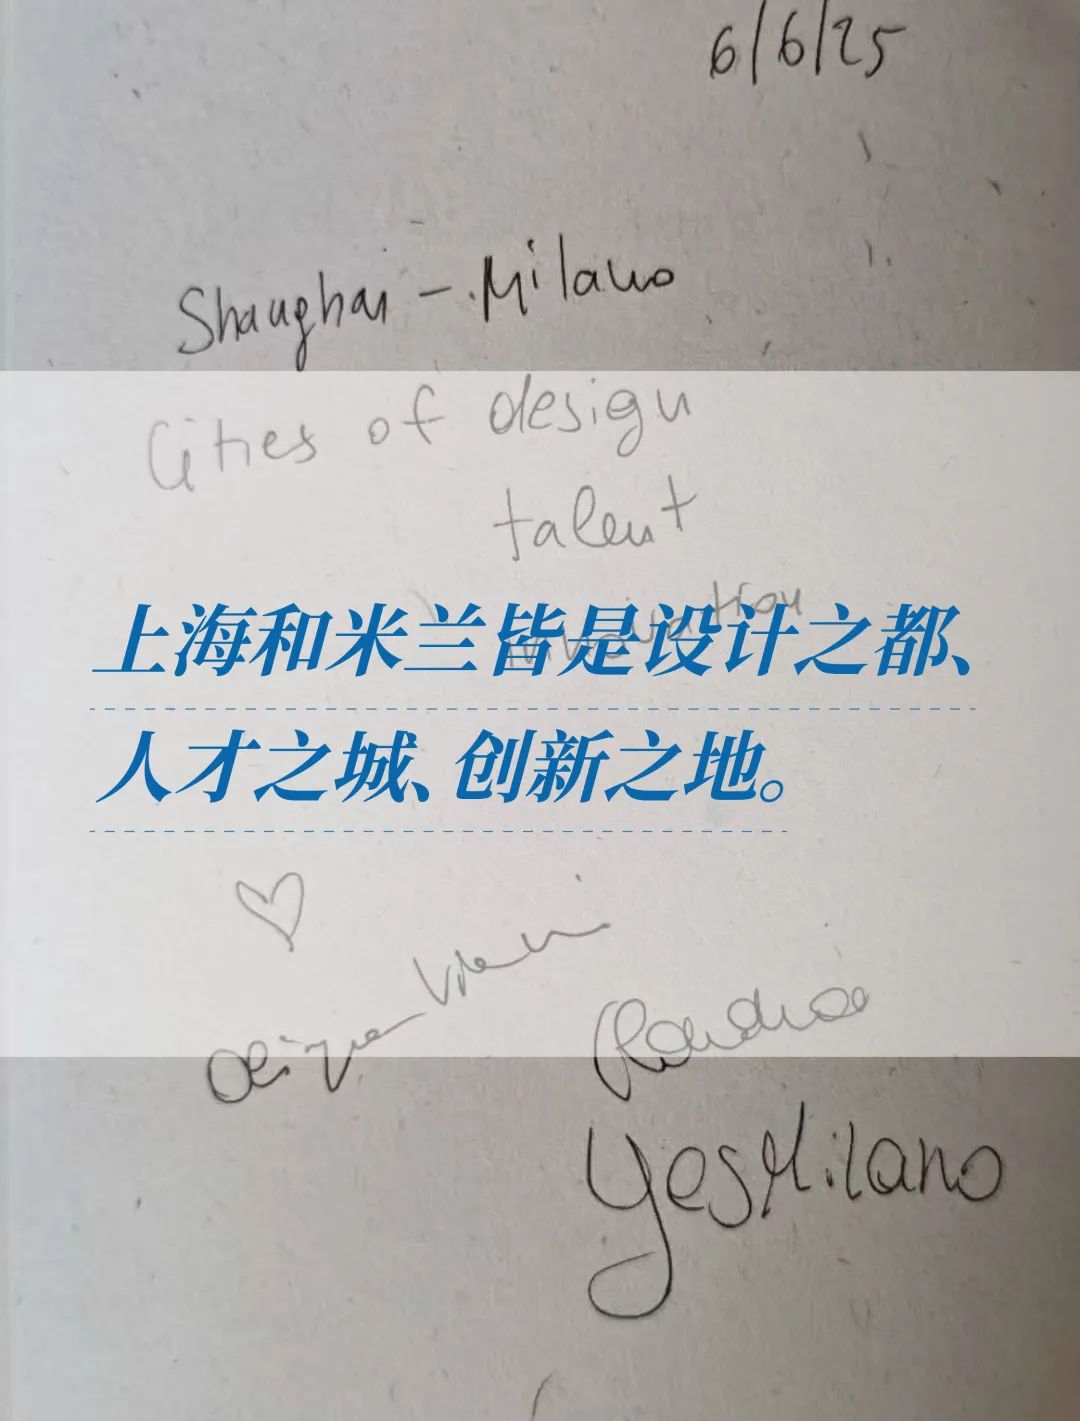 6/6/25
Shanghai - Milano
Cities of design
talent
innovation
上海和米兰皆是设计之都、
人才之城、创新之地。
YesMilano